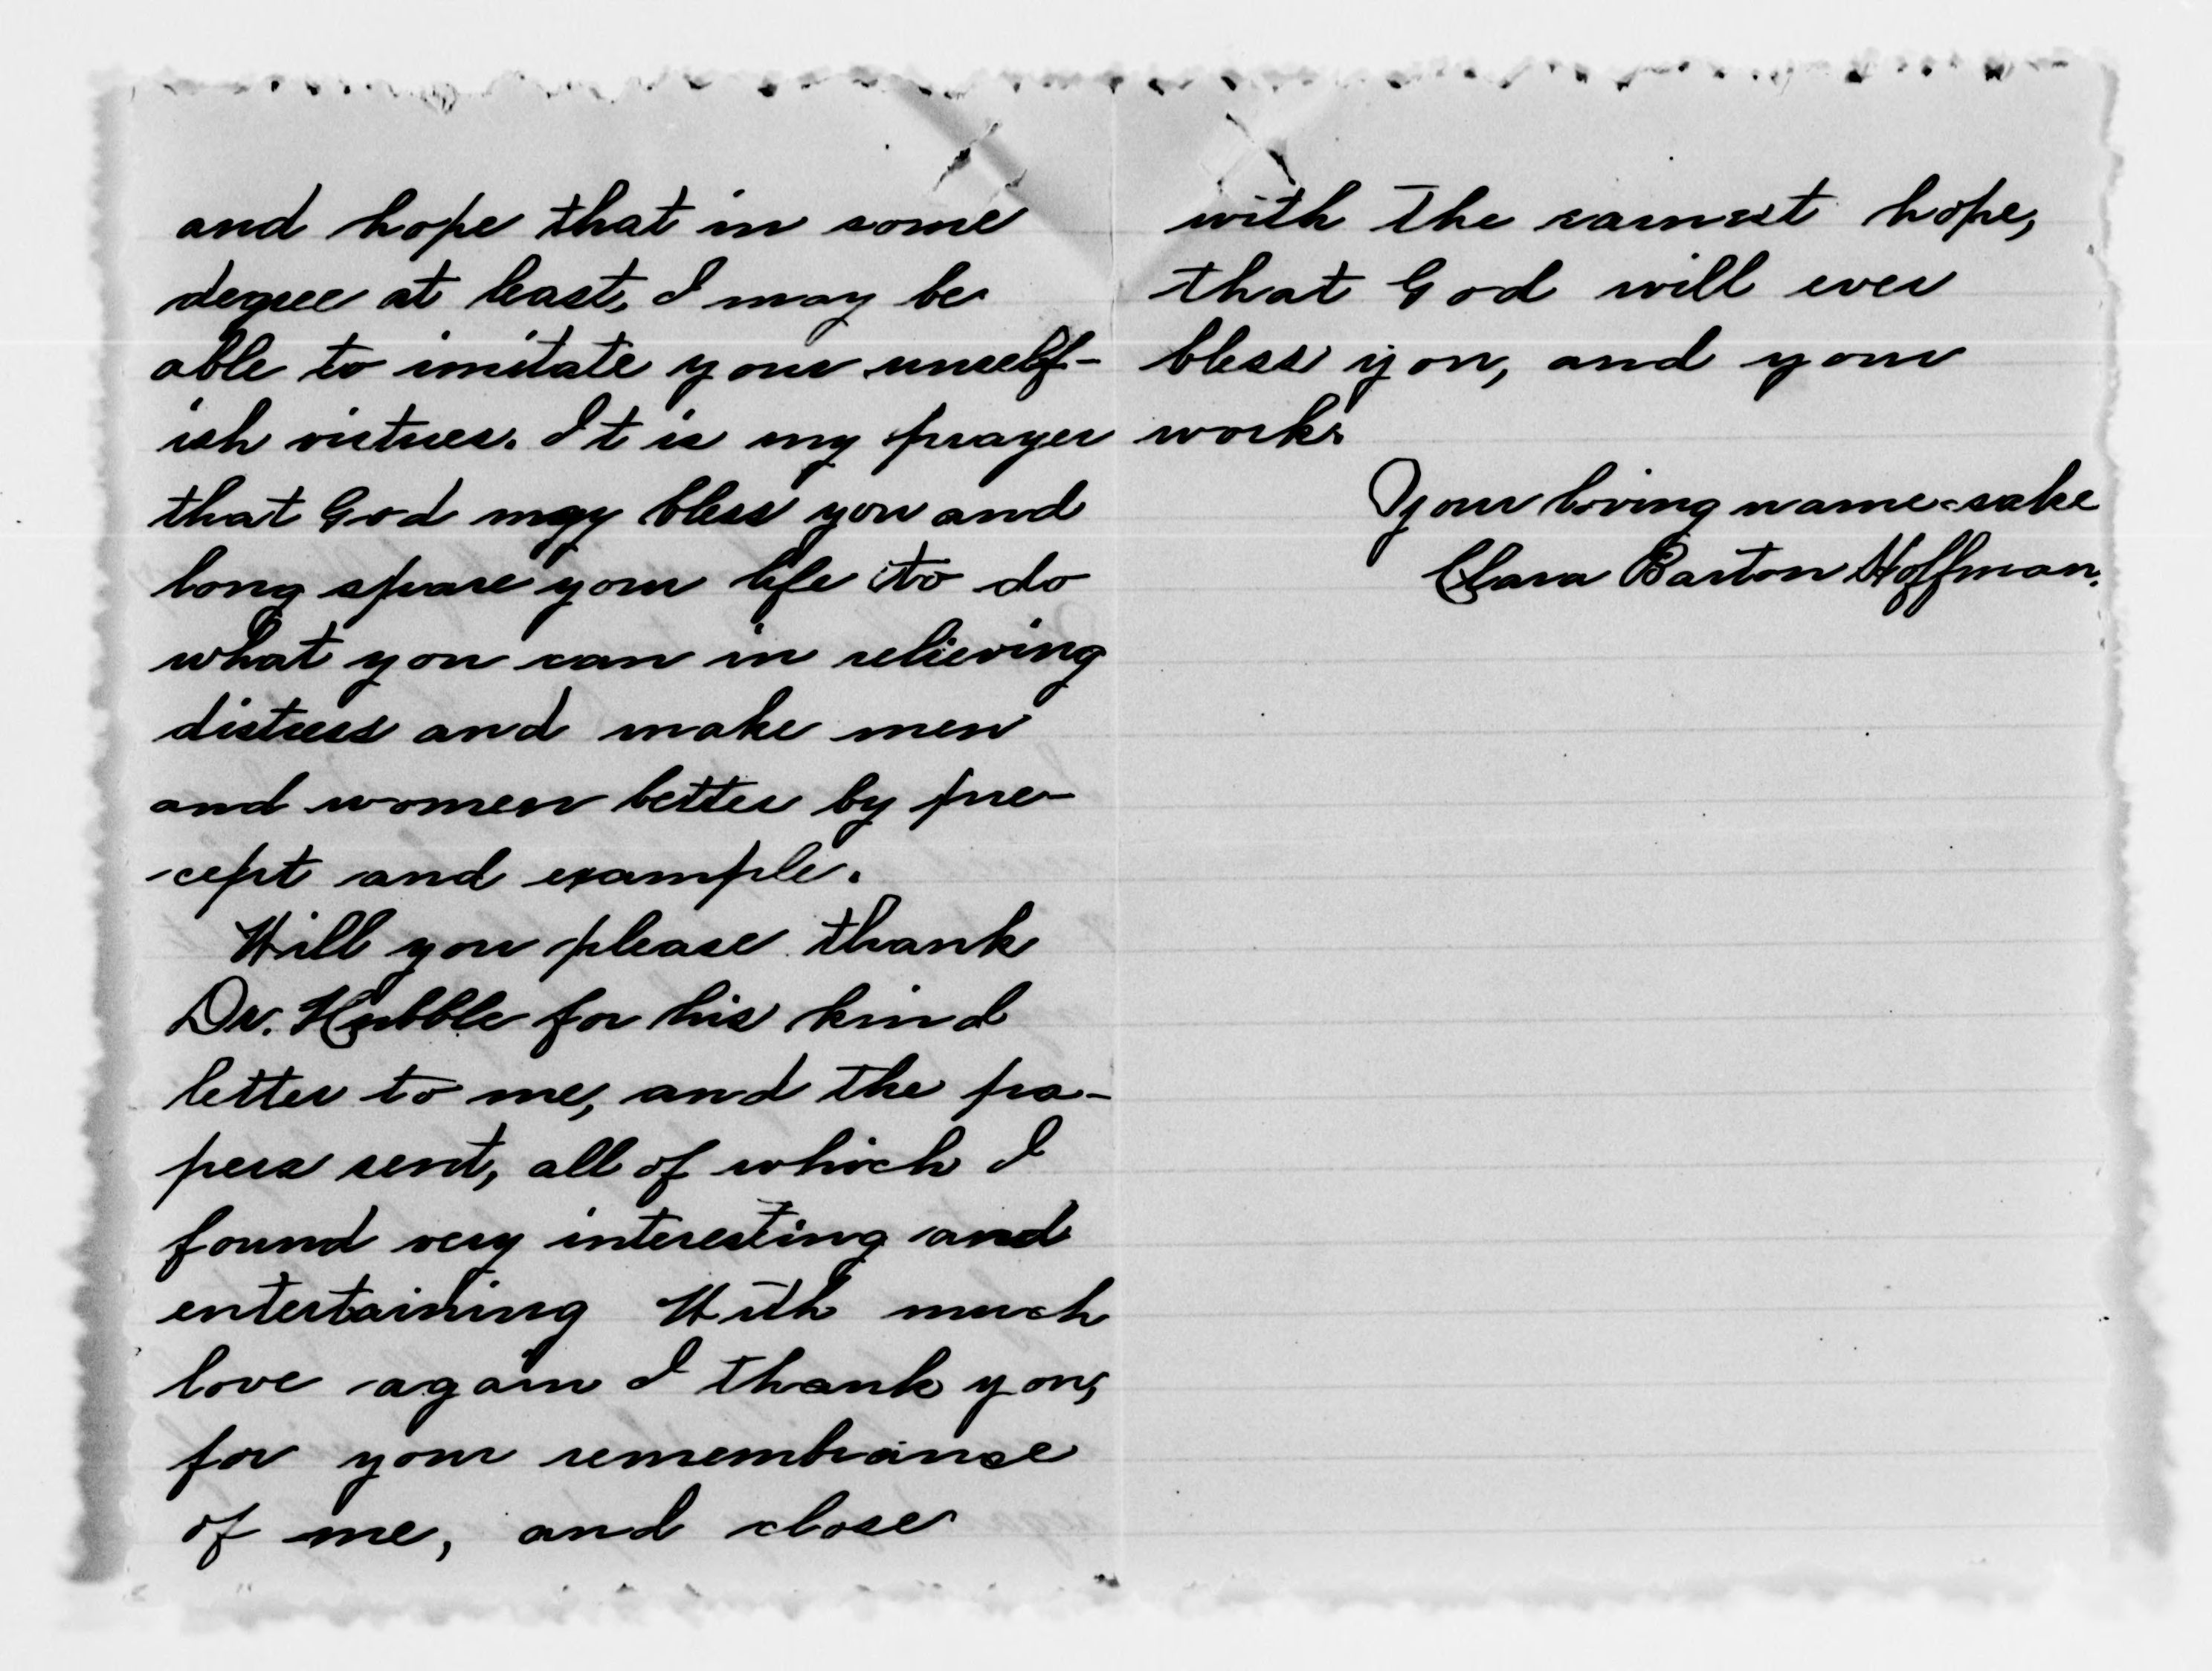 and hope that in some
degree at least, I may be
able to imitate your unself-
ish virtues. It is my prayer
that God may bless you and
long spare your life to do
what you can in relieving
distress and make men
and women better by pre-
cept and example.
Will you please thank
Dr. Hubble for his kind
letter to me, and the pa-
pers sent, all of which I
found very interesting and
entertaining With much
love again I thank you,
for your remembrance
of me, and close
with the earnest hope,
that God will ever
bless you, and your
work.
Your loving name-sake
Clara Barton Hoffman.